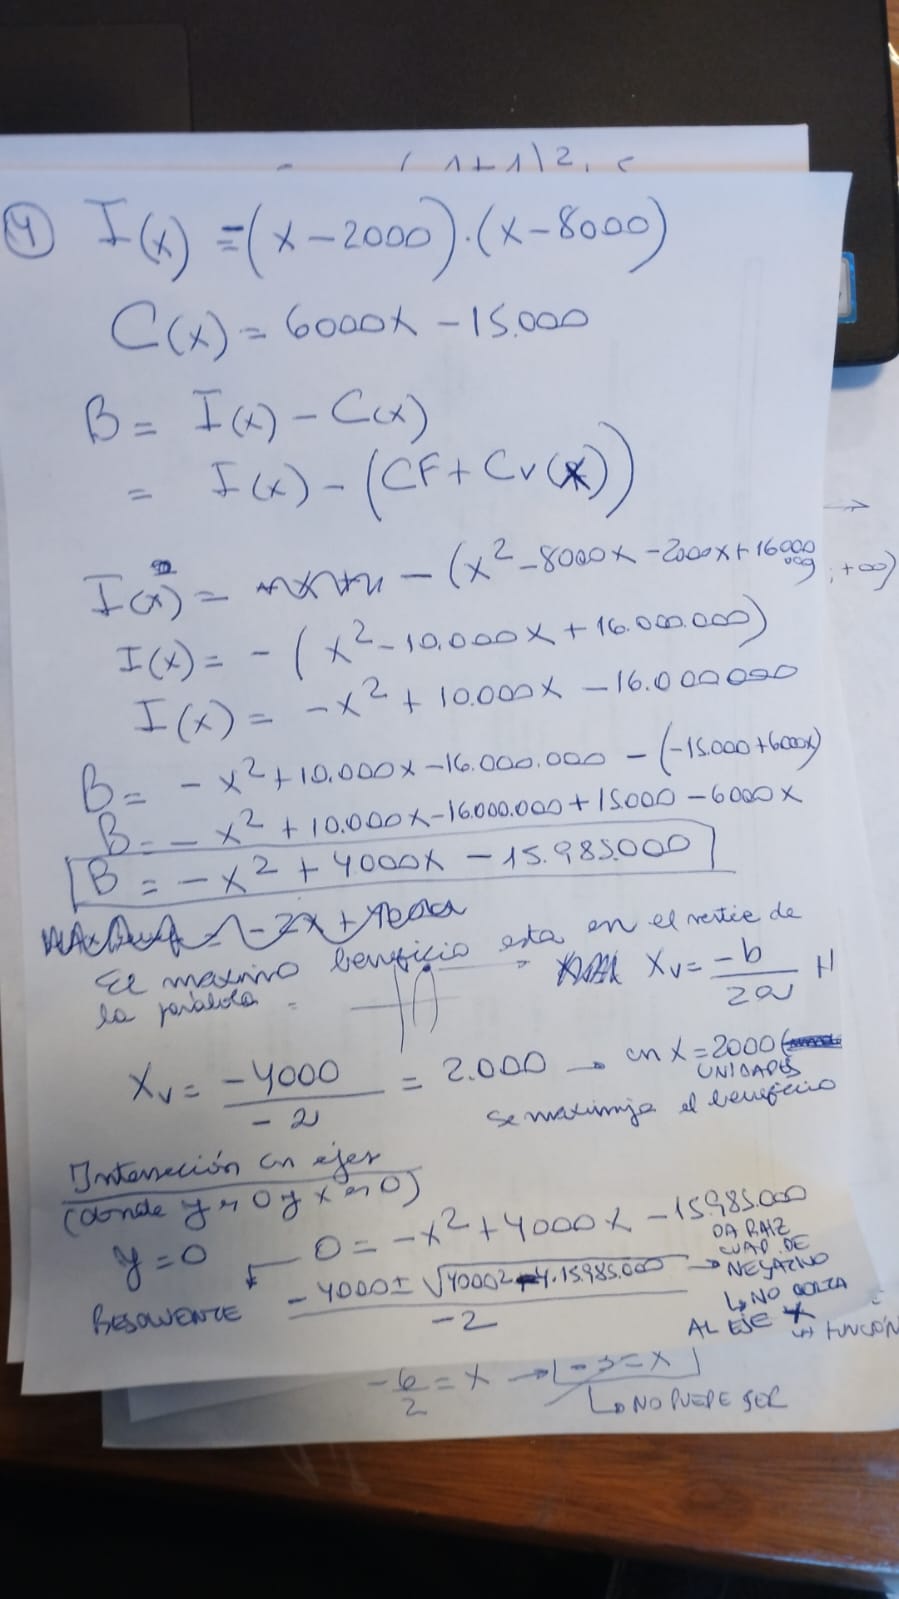 (1+1)2.
④ I(x) = -(x-2000).(x-8000)
C(x) = 6000x - 15.000
B = I(x) - C(x)
= I(x) - (CF + CV(x))
I(x) = - (x² - 8000x - 2000x + 16000 000)
; +∞)
I(x) = - (x² - 10.000x + 16.000.000)
I(x) = -x² + 10.000x - 16.000.000
B = -x² + 10.000x - 16.000.000 - (-15.000 + 6000x)
B = -x² + 10.000x - 16.000.000 + 15.000 - 6000x
B = -x² + 4000x - 15.985.000
El maximo beneficio esta en el vertice de
la parábola = Xv = -b / 2a
Xv = -4000 / -2 = 2.000 → en X = 2000
UNIDADES
se maximiza el beneficio
Intersección con ejes
(donde y es 0 y x es 0)
y = 0 0 = -x² + 4000x - 15985.000
RESOLVENTE -4000 ± √4000² - 4.15.985.000 / -2 → DA RAIZ
CUAD. DE
NEGATIVO
↳ NO CORTA
AL EJE X
FUNCIÓN
-6/2 = x → -3 = x
↳ NO PUEDE SER